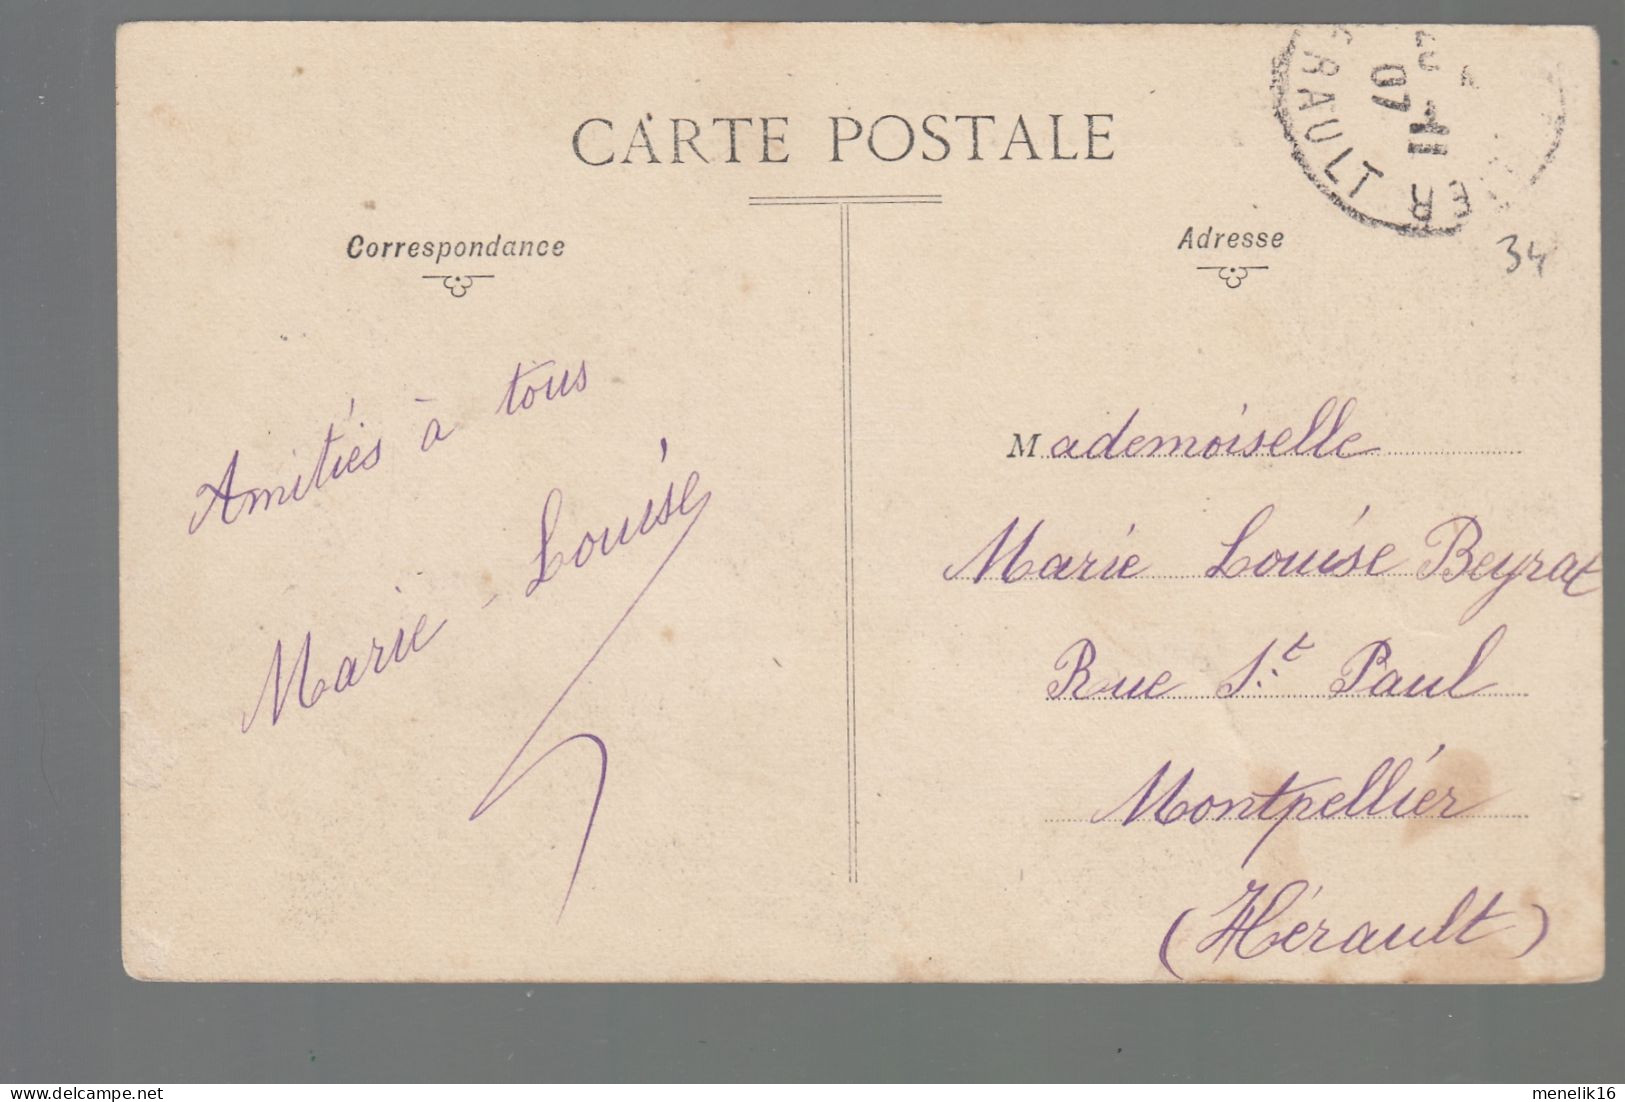 CARTE POSTALE
Correspondance
Adresse
34
RAULT
07
ER
Amitiés à tous
Marie-Louise
Mademoiselle
Marie Louise Beyrat
Rue St Paul
Montpellier
(Hérault)
www.delcampe.net
menelik16